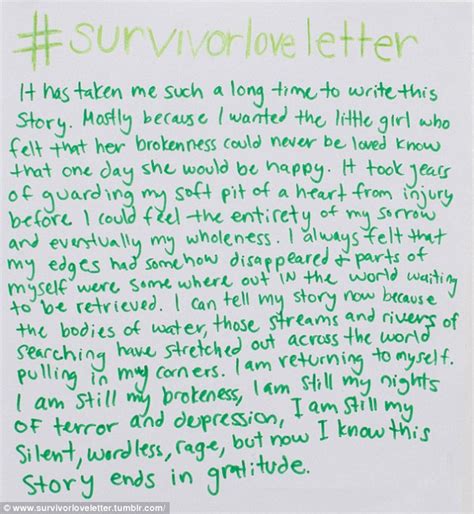 #survivorloveletter
It has taken me such a long time to write this
Story. Mostly because I wanted the little girl who
felt that her brokenness could never be loved know
that one day she would be happy. It took years
of guarding my soft pit of a heart from injury
before I could feel the entirety of my sorrow
and eventually my wholeness. I always felt that
my edges had somehow disappeared & parts of
myself were some where out in the world waiting
to be retrieved. I can tell my story now because
the bodies of water, those streams and rivers of
searching have stretched out across the world
pulling in my corners. I am returning to myself.
I am still my brokeness, I am still my nights
of terror and depression, I am still my
silent, wordless, rage, but now I know this
story ends in gratitude.
© www.survivorloveletter.tumblr.com/